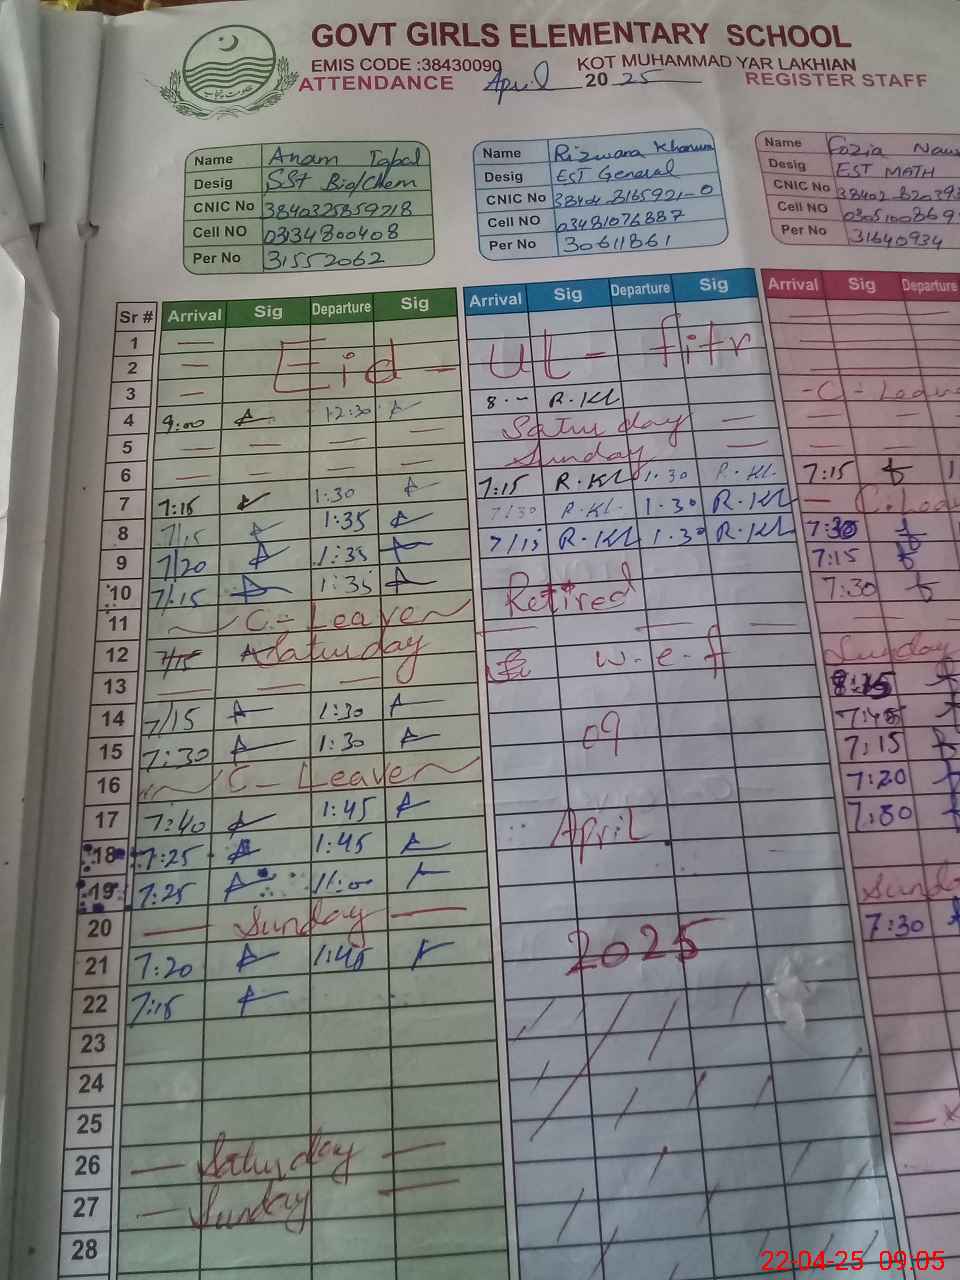 GOVT GIRLS ELEMENTARY SCHOOL
EMIS CODE :38430090 KOT MUHAMMAD YAR LAKHIAN
ATTENDANCE April 2025 REGISTER STAFF
Name Anam Iqbal
Desig SSt Bio/Chem
CNIC No 3840325859218
Cell NO 03134800408
Per No 31552062
Name Rizwana Khanum
Desig EST General
CNIC No 38404-3165921-0
Cell NO 03481076887
Per No 30611861
Name Fozia
Desig EST MATH
CNIC No
Cell NO
Per No 31640934
Sr # Arrival Sig Departure Sig Arrival Sig Departure Sig Arrival Sig Departure
1
2 Eid - Ul - fitr
3 - C - Leave
4 9:00 A 12:30 A 8 -- R.Kh
5 Saturday
6 Sunday
7 7:15 1:30 A 7:15 R.Kh 1:30 R.Kh. 7:15
8 7/15 A 1:35 A 7/30 R.Kh. 1:30 R.Kh C.Leave
9 7/20 A 1:35 A 7/15 R.Kh 1:30 R.Kh 7:30
10 7/15 A 1:35 A 7:15
11 C - Leave Retired 7:30
12 7/15 A Saturday
13 w-e-f Sunday
14 7/15 A 1:30 A 8:15
15 7:30 A 1:30 A 09 7:45
16 C - Leave 7:15
17 7:40 A 1:45 A 7:20
18 7:25 A 1:45 A April 7:30
19 7:25 A 11:00
20 Sunday
21 7:20 A 1:45 2025 7:30
22 7:15 A
23
24
25
26 Saturday
27 Sunday
28
22-04-25 09:05